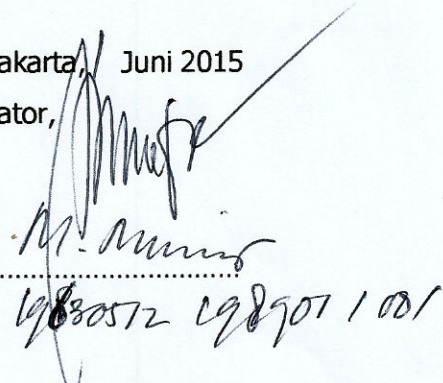 akarta, Juni 2015
ator,
M. Munir
19630512 198901 1 001